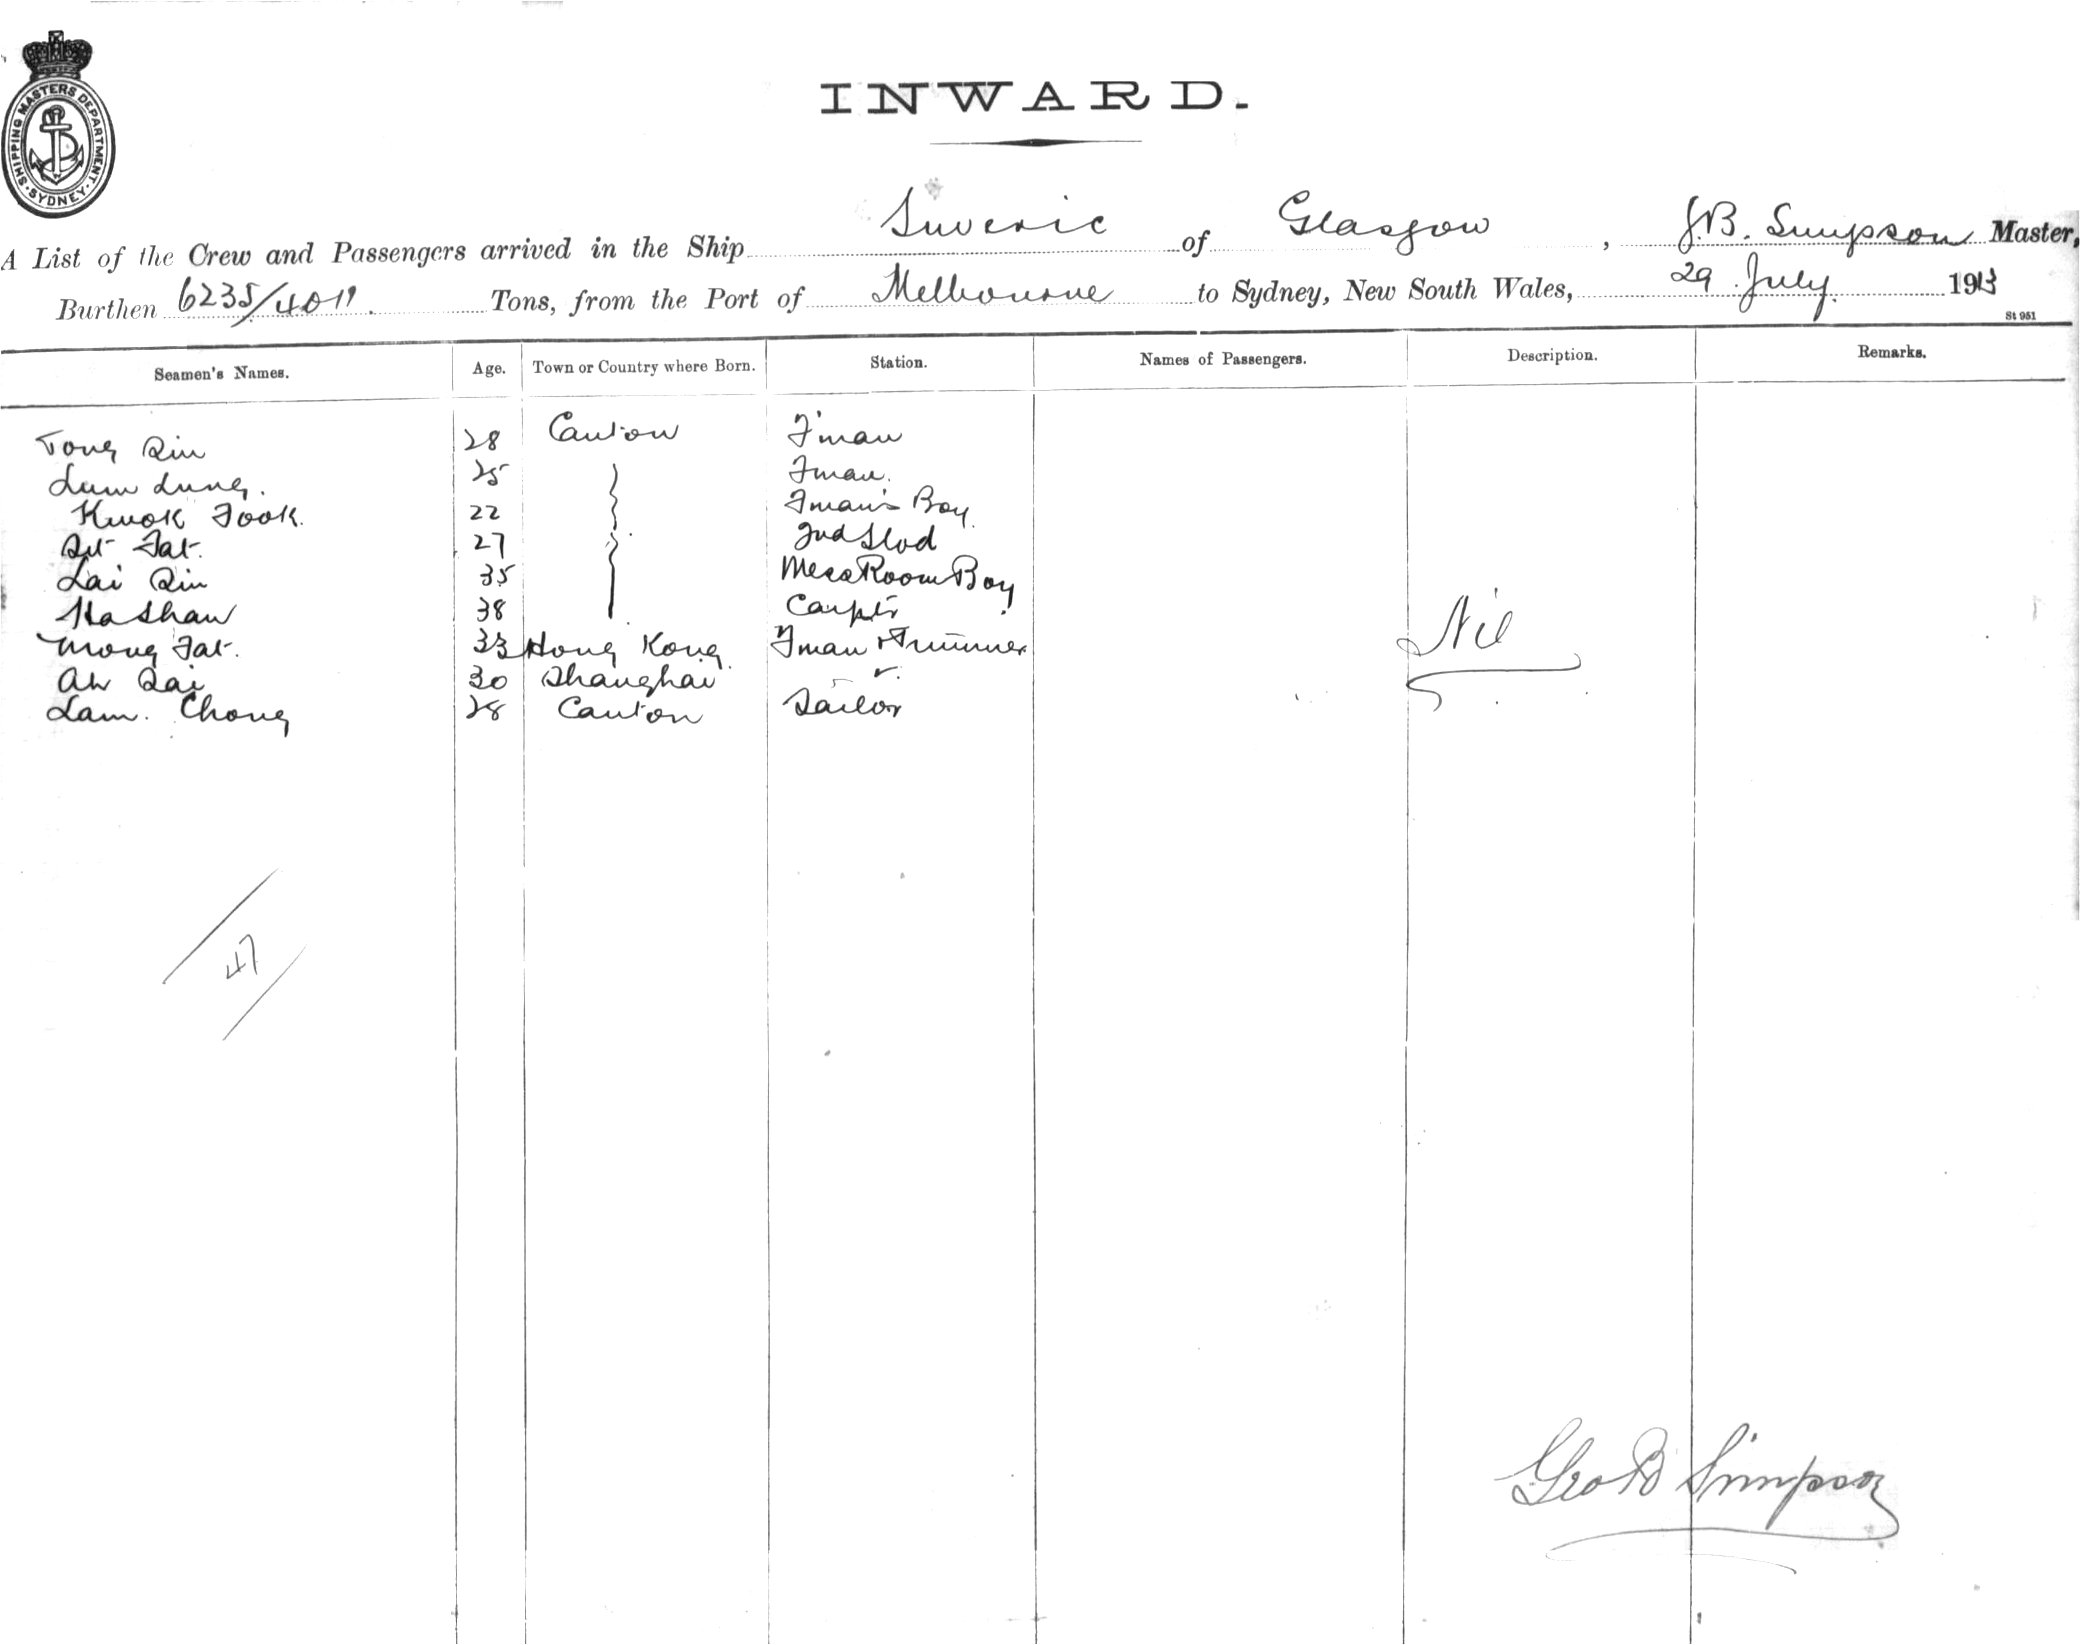 SHIPPING MASTERS DEPARTMENT. SYDNEY
INWARD.
A List of the Crew and Passengers arrived in the Ship Suveric of Glasgow, J.B. Simpson Master,
Burthen 6235/4011. Tons, from the Port of Melbourne to Sydney, New South Wales, 29 July. 1913
St 951
Seamen's Names. Age. Town or Country where Born. Station. Names of Passengers. Description. Remarks.
Tong Sin 28 Canton F'man
Lum Lung. 25 Fman.
Kwok Fook. 22 Fman's Boy.
Sit Fat. 27 2nd Stod
Lai Sin 35 Mess Room Boy
Ha Shaw 38 Carptr
Mong Fat. 33 Hong Kong. Fman & Trimmer
Ah Sai 30 Shanghai
Lam. Chong 28 Canton Sailor
Nil
47
Geo B Simpson